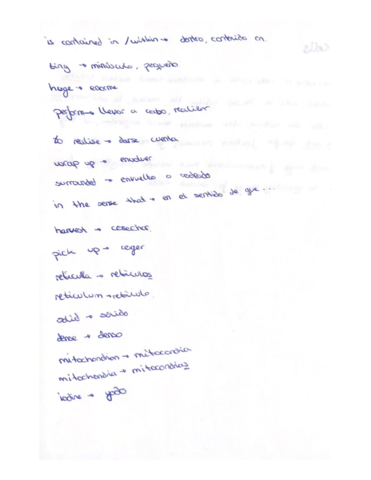 is contained in / within → dentro, contenido en
tiny → minúsculo, pequeño
huge → enorme
perform → llevar a cabo, realizar
to realise → darse cuenta
wrap up → envolver
surrounded → envuelto o rodeado
in the sense that → en el sentido de que ...
harvest → cosechar
pick up → coger
reticula → retículos
reticulum → retículo
solid → sólido
dense → denso
mitochondrion → mitocondria
mitochondria → mitocondrias
iodine → yodo